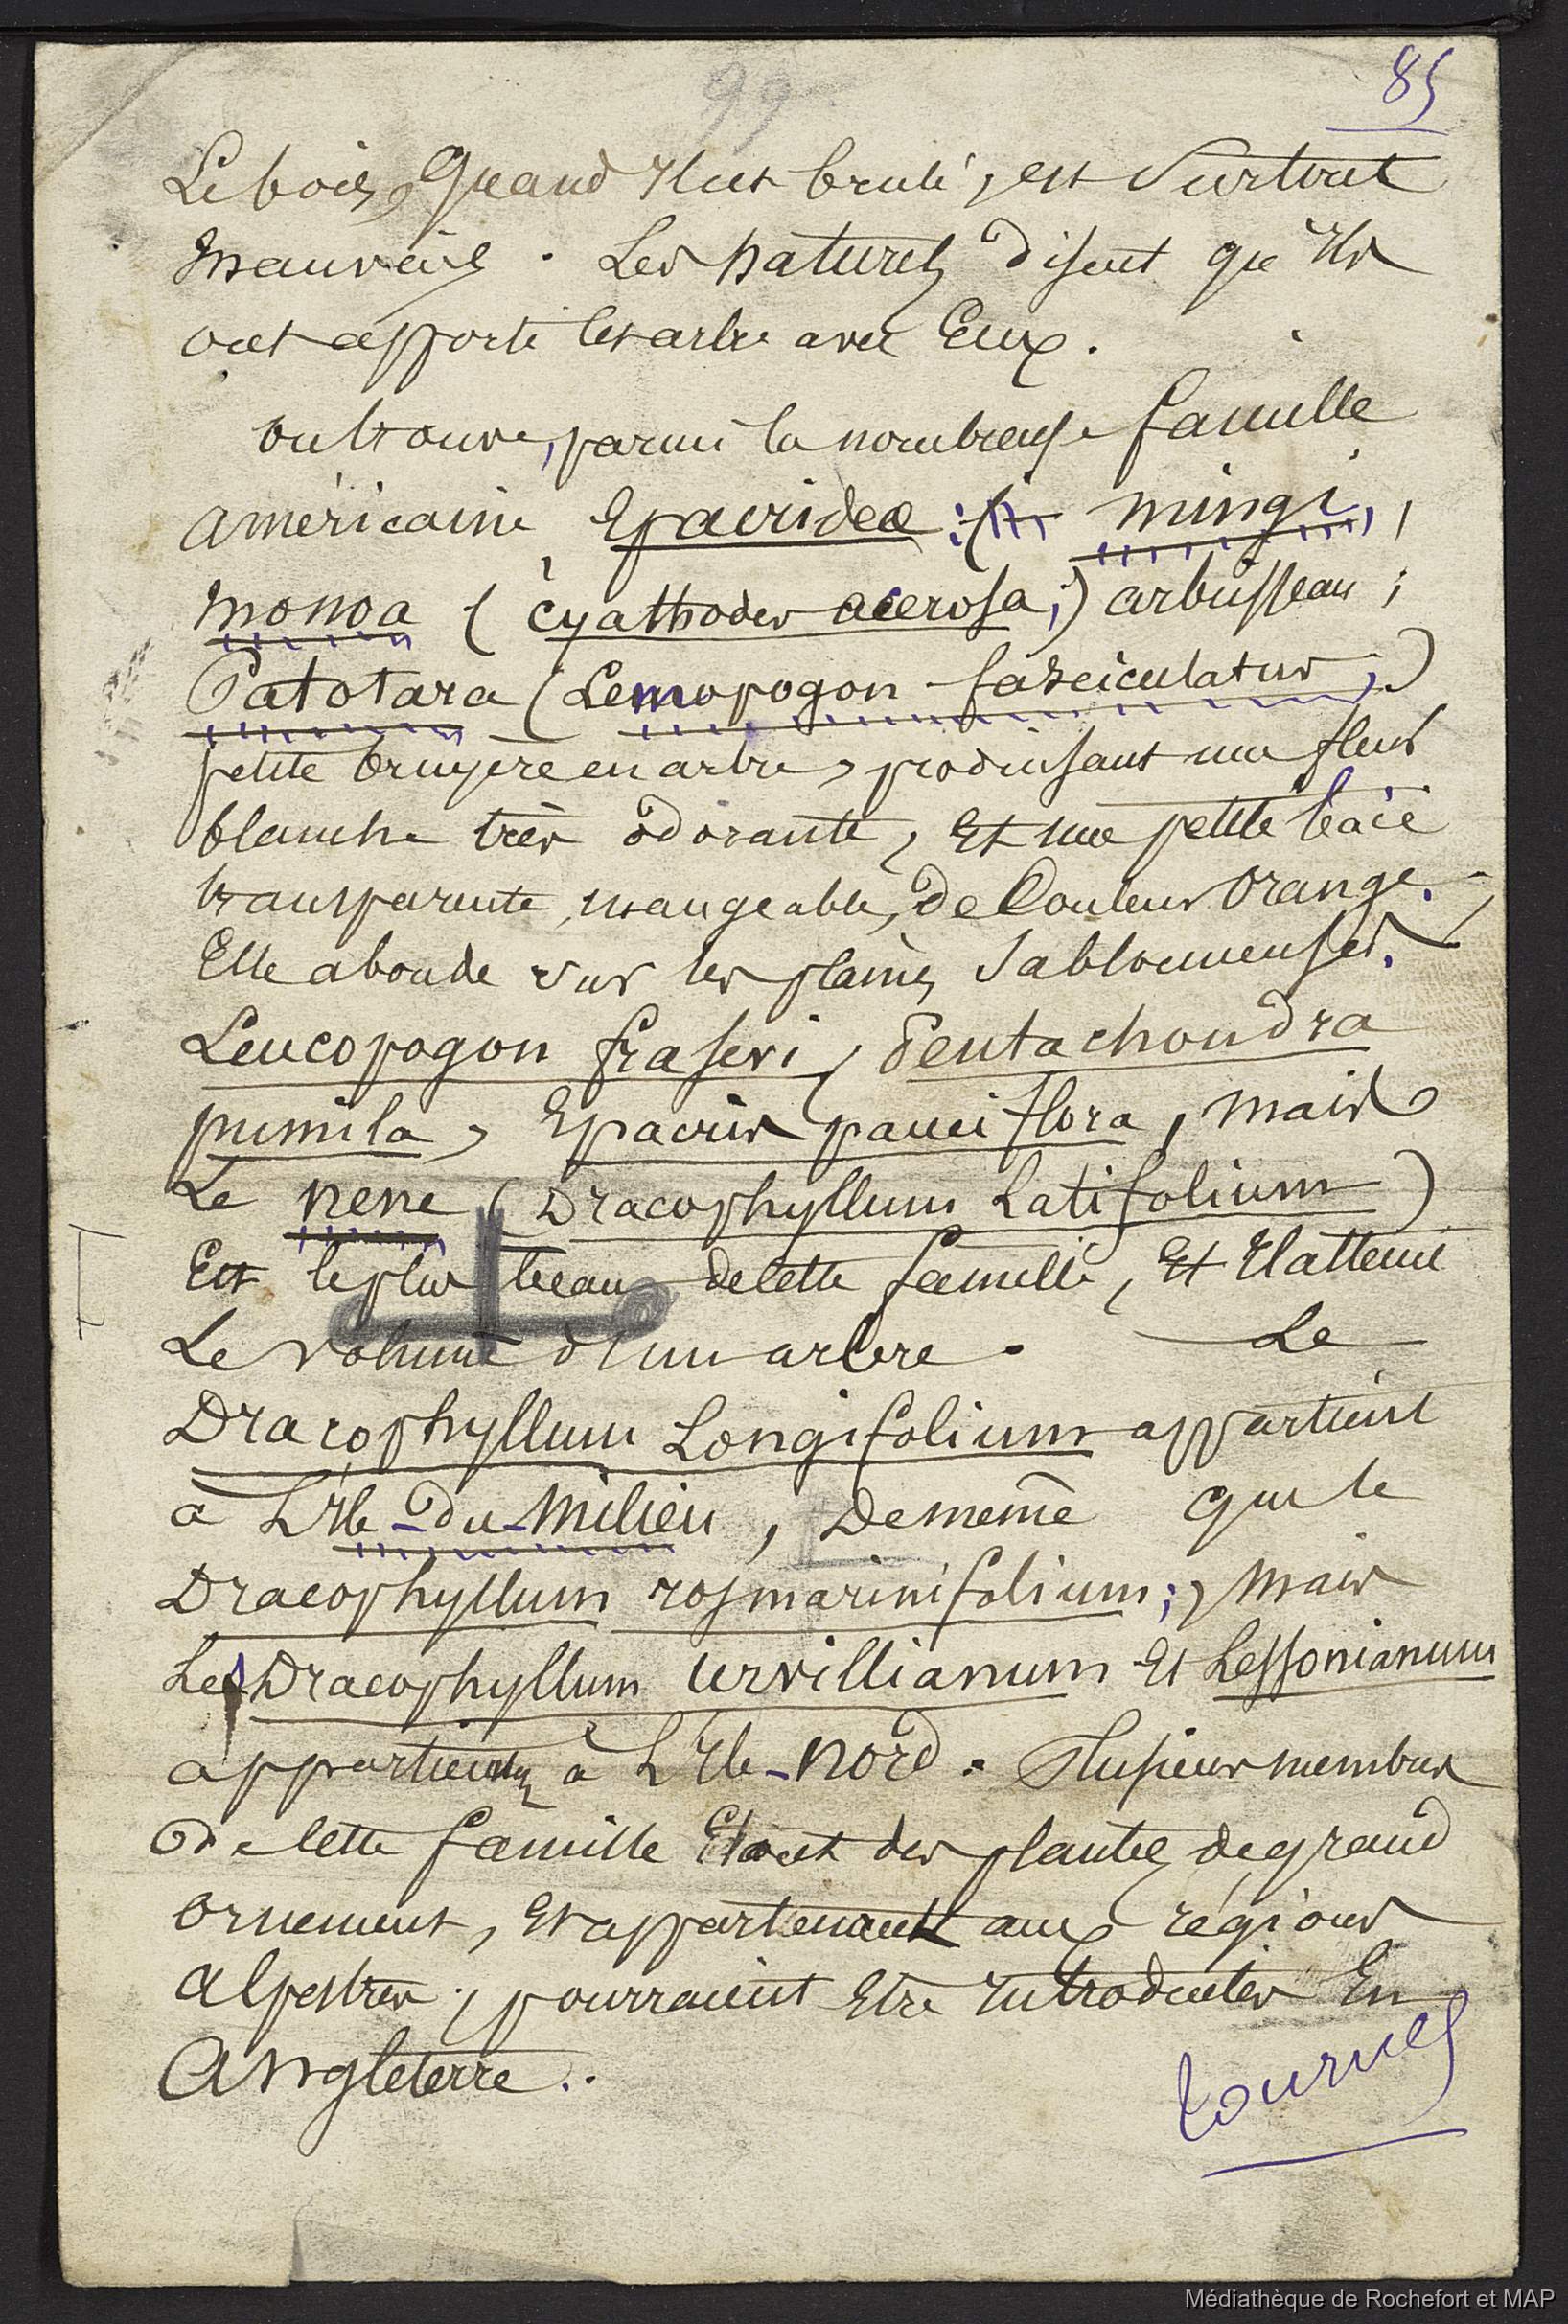 99
85
Le bois, Quand Il est brulé, est Surtout
mauvais. Les naturels disent qu'Ils
ont apporté cet arbre avec Eux.
on trouve, parmi la nombreuse famille
américaine Epacrideae : mingi,
monoa (cyathodes acerosa;) arbusseau;
Patotara (Lemopogon fasciculatus;)
petite bruyère en arbre, produisant une fleur
blanche très odorante, Et une petite baie
transparente, mangeable, de Couleur orange.
Elle abonde sur les plaines Sablonneuses,
Leucopogon fraseri, Pentachondra
pumila, Epacris pauciflora, mais
Le nene (Dracophyllum Latifolium)
Est le plus beau de cette famille, Et Il atteint
Le volume d'un arbre. Le
Dracophyllum Longifolium appartient
à L'Ile-du-Milieu, De même que le
Dracophyllum rosmarinifolium;, mais
Les Dracophyllum Urvillianum Et Lessonianum
appartiennent à L'Ile-Nord. Plusieurs membres
De cette famille Etant des plantes de grand
ornement, Et appartenant aux régions
alpestres, pourraient Etre Introduites En
Angleterre..
tournez
Médiathèque de Rochefort et MAP